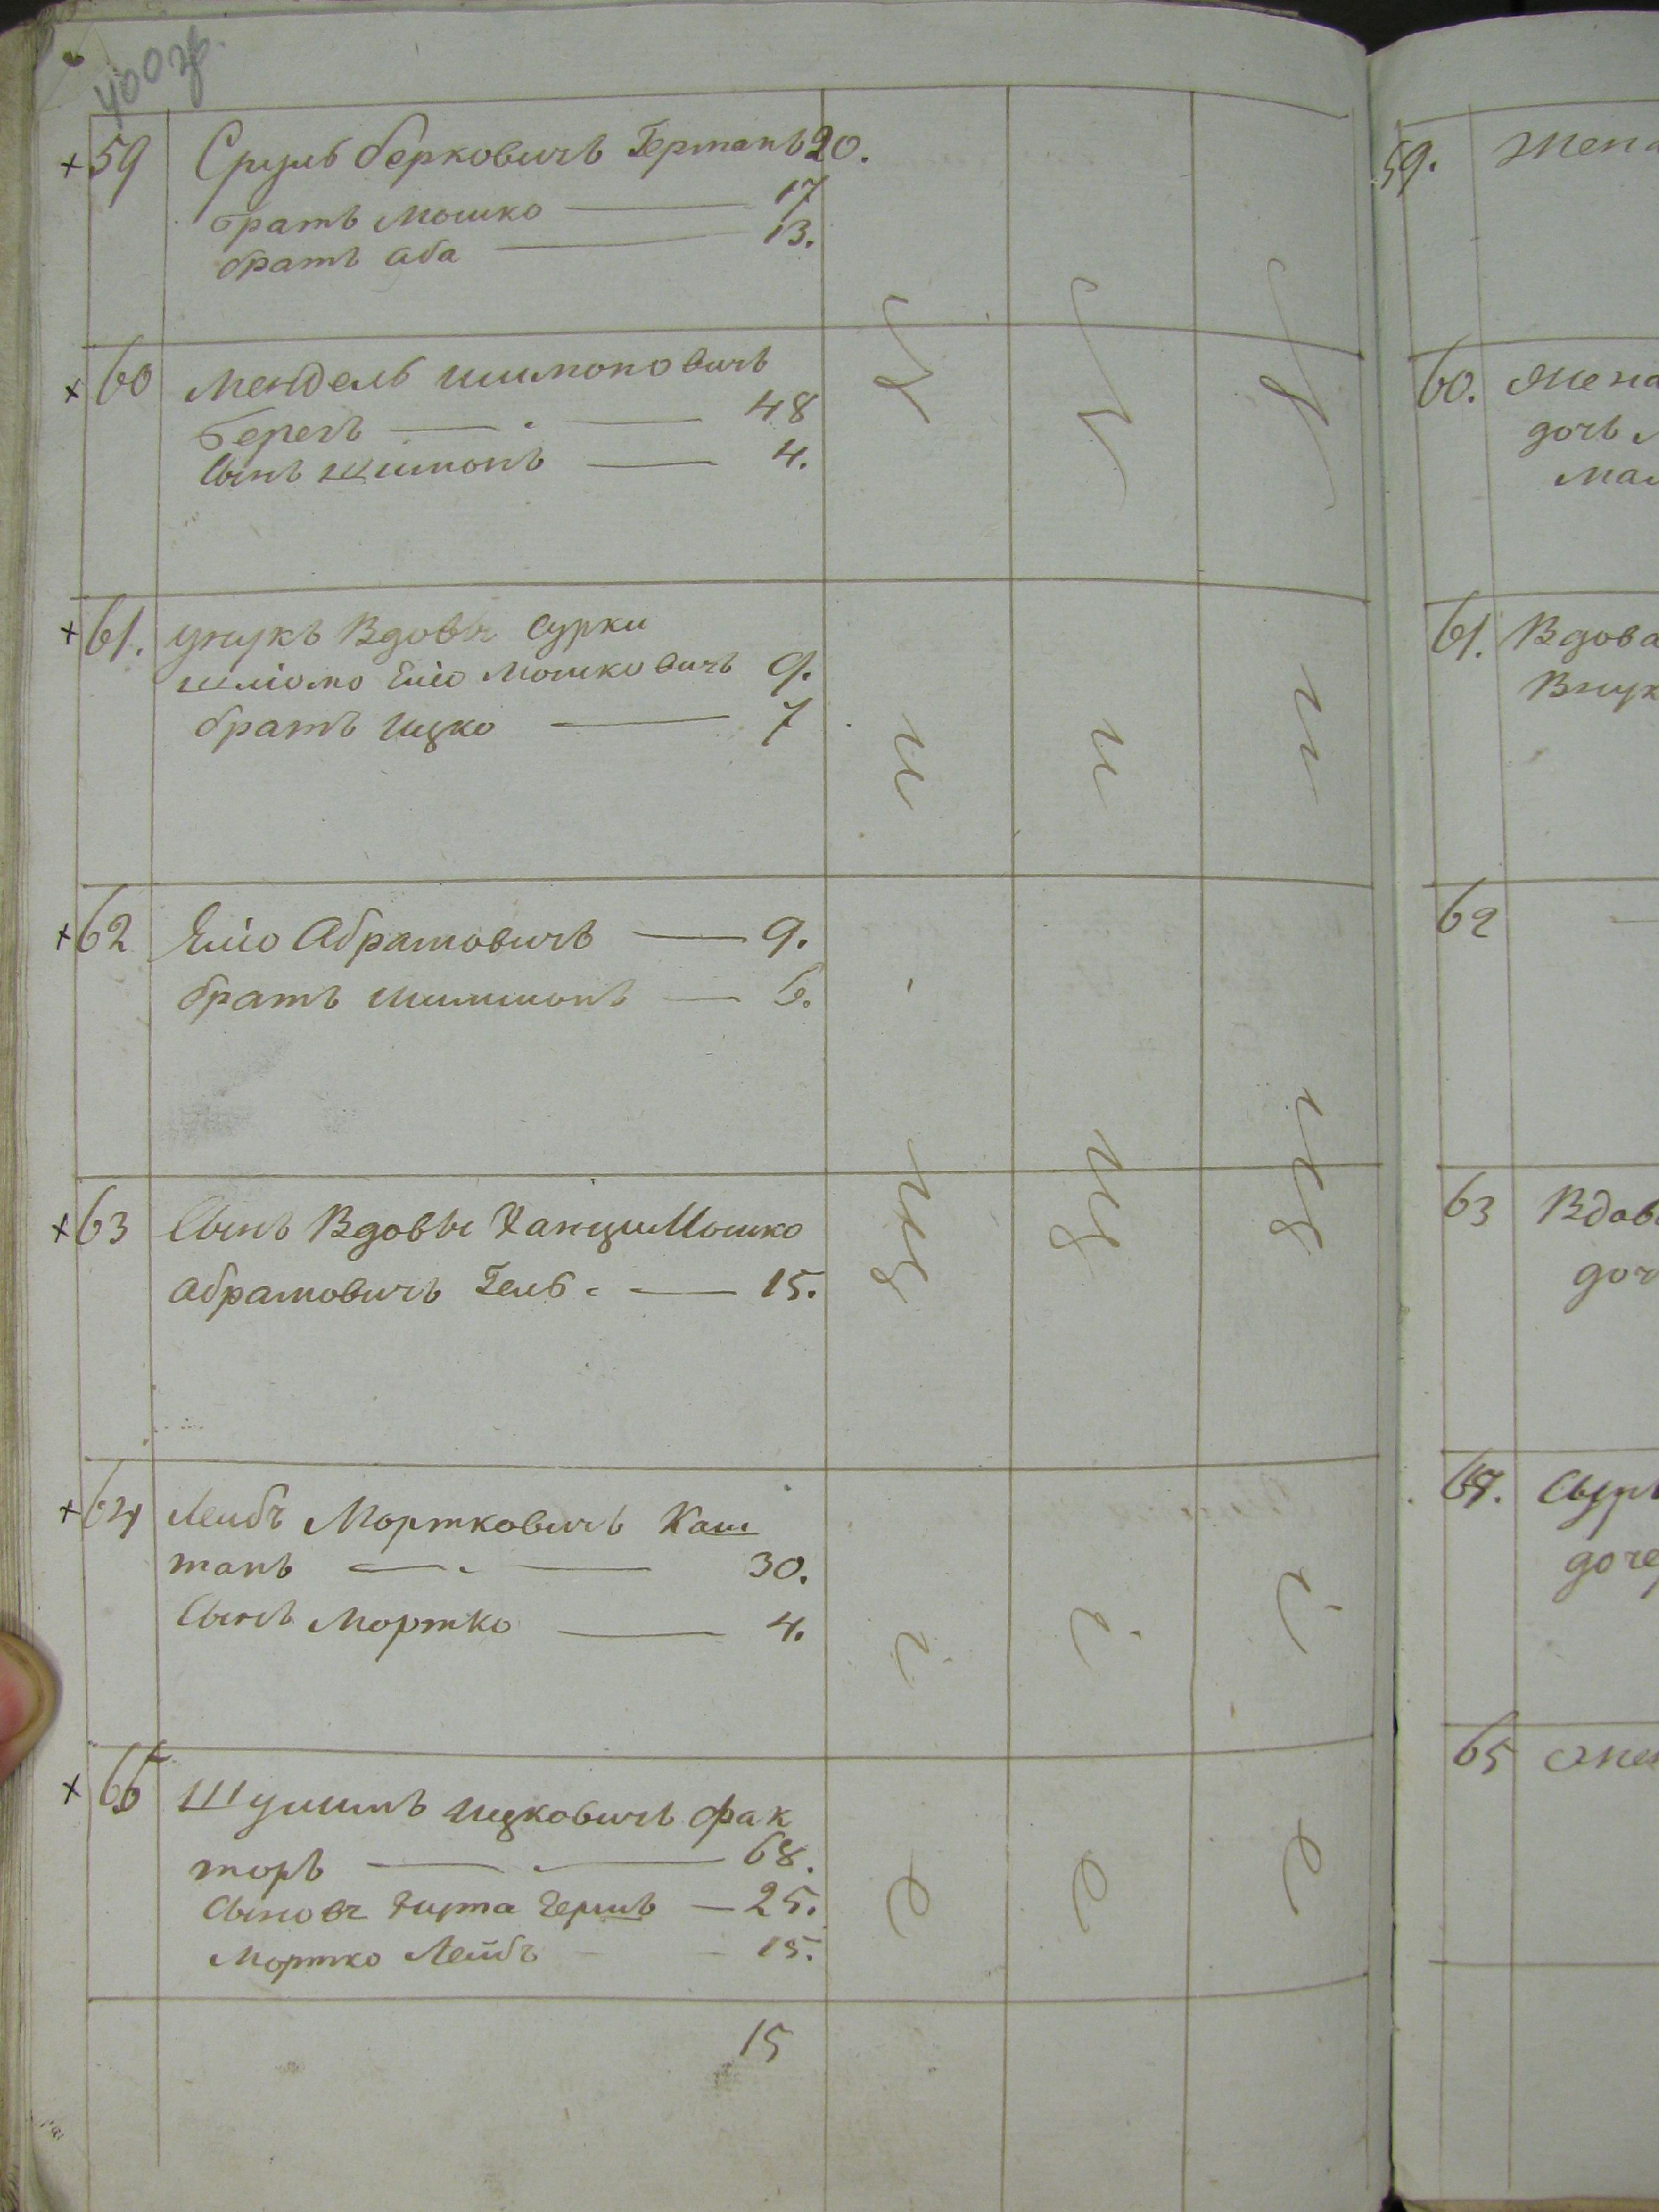 400 зв.
+59 Сруль Берковичъ Германъ 20.
братъ Мошко — 17
братъ Аба — 13.
+60 Мендель Шимоновичъ
Берегъ — 48
Сынъ Шимонъ — 4.
+61. Унукъ Вдовы Сурки
Шліомо Еліо Мошковичъ 9.
братъ Ицко — 7
+62 Еліо Абрамовичъ — 9.
братъ Шимшонъ — 6.
+63 Сынъ Вдовы Ханци Мошко
Абрамовичъ Гель — 15.
+64 Лейбъ Мортковичъ Каш
танъ — 30.
Сынъ Мортко — 4.
+65 Шулимъ Ицковичъ Фак
торъ — 68.
Сыновъ Гершъ — 25.
Мортко Лейбъ — 15.
15
59. Жена
60. Жена
дочь
61. Вдова
Внук
62 —
63 Вдов
доч
64. Сын
дочер
65 Жен